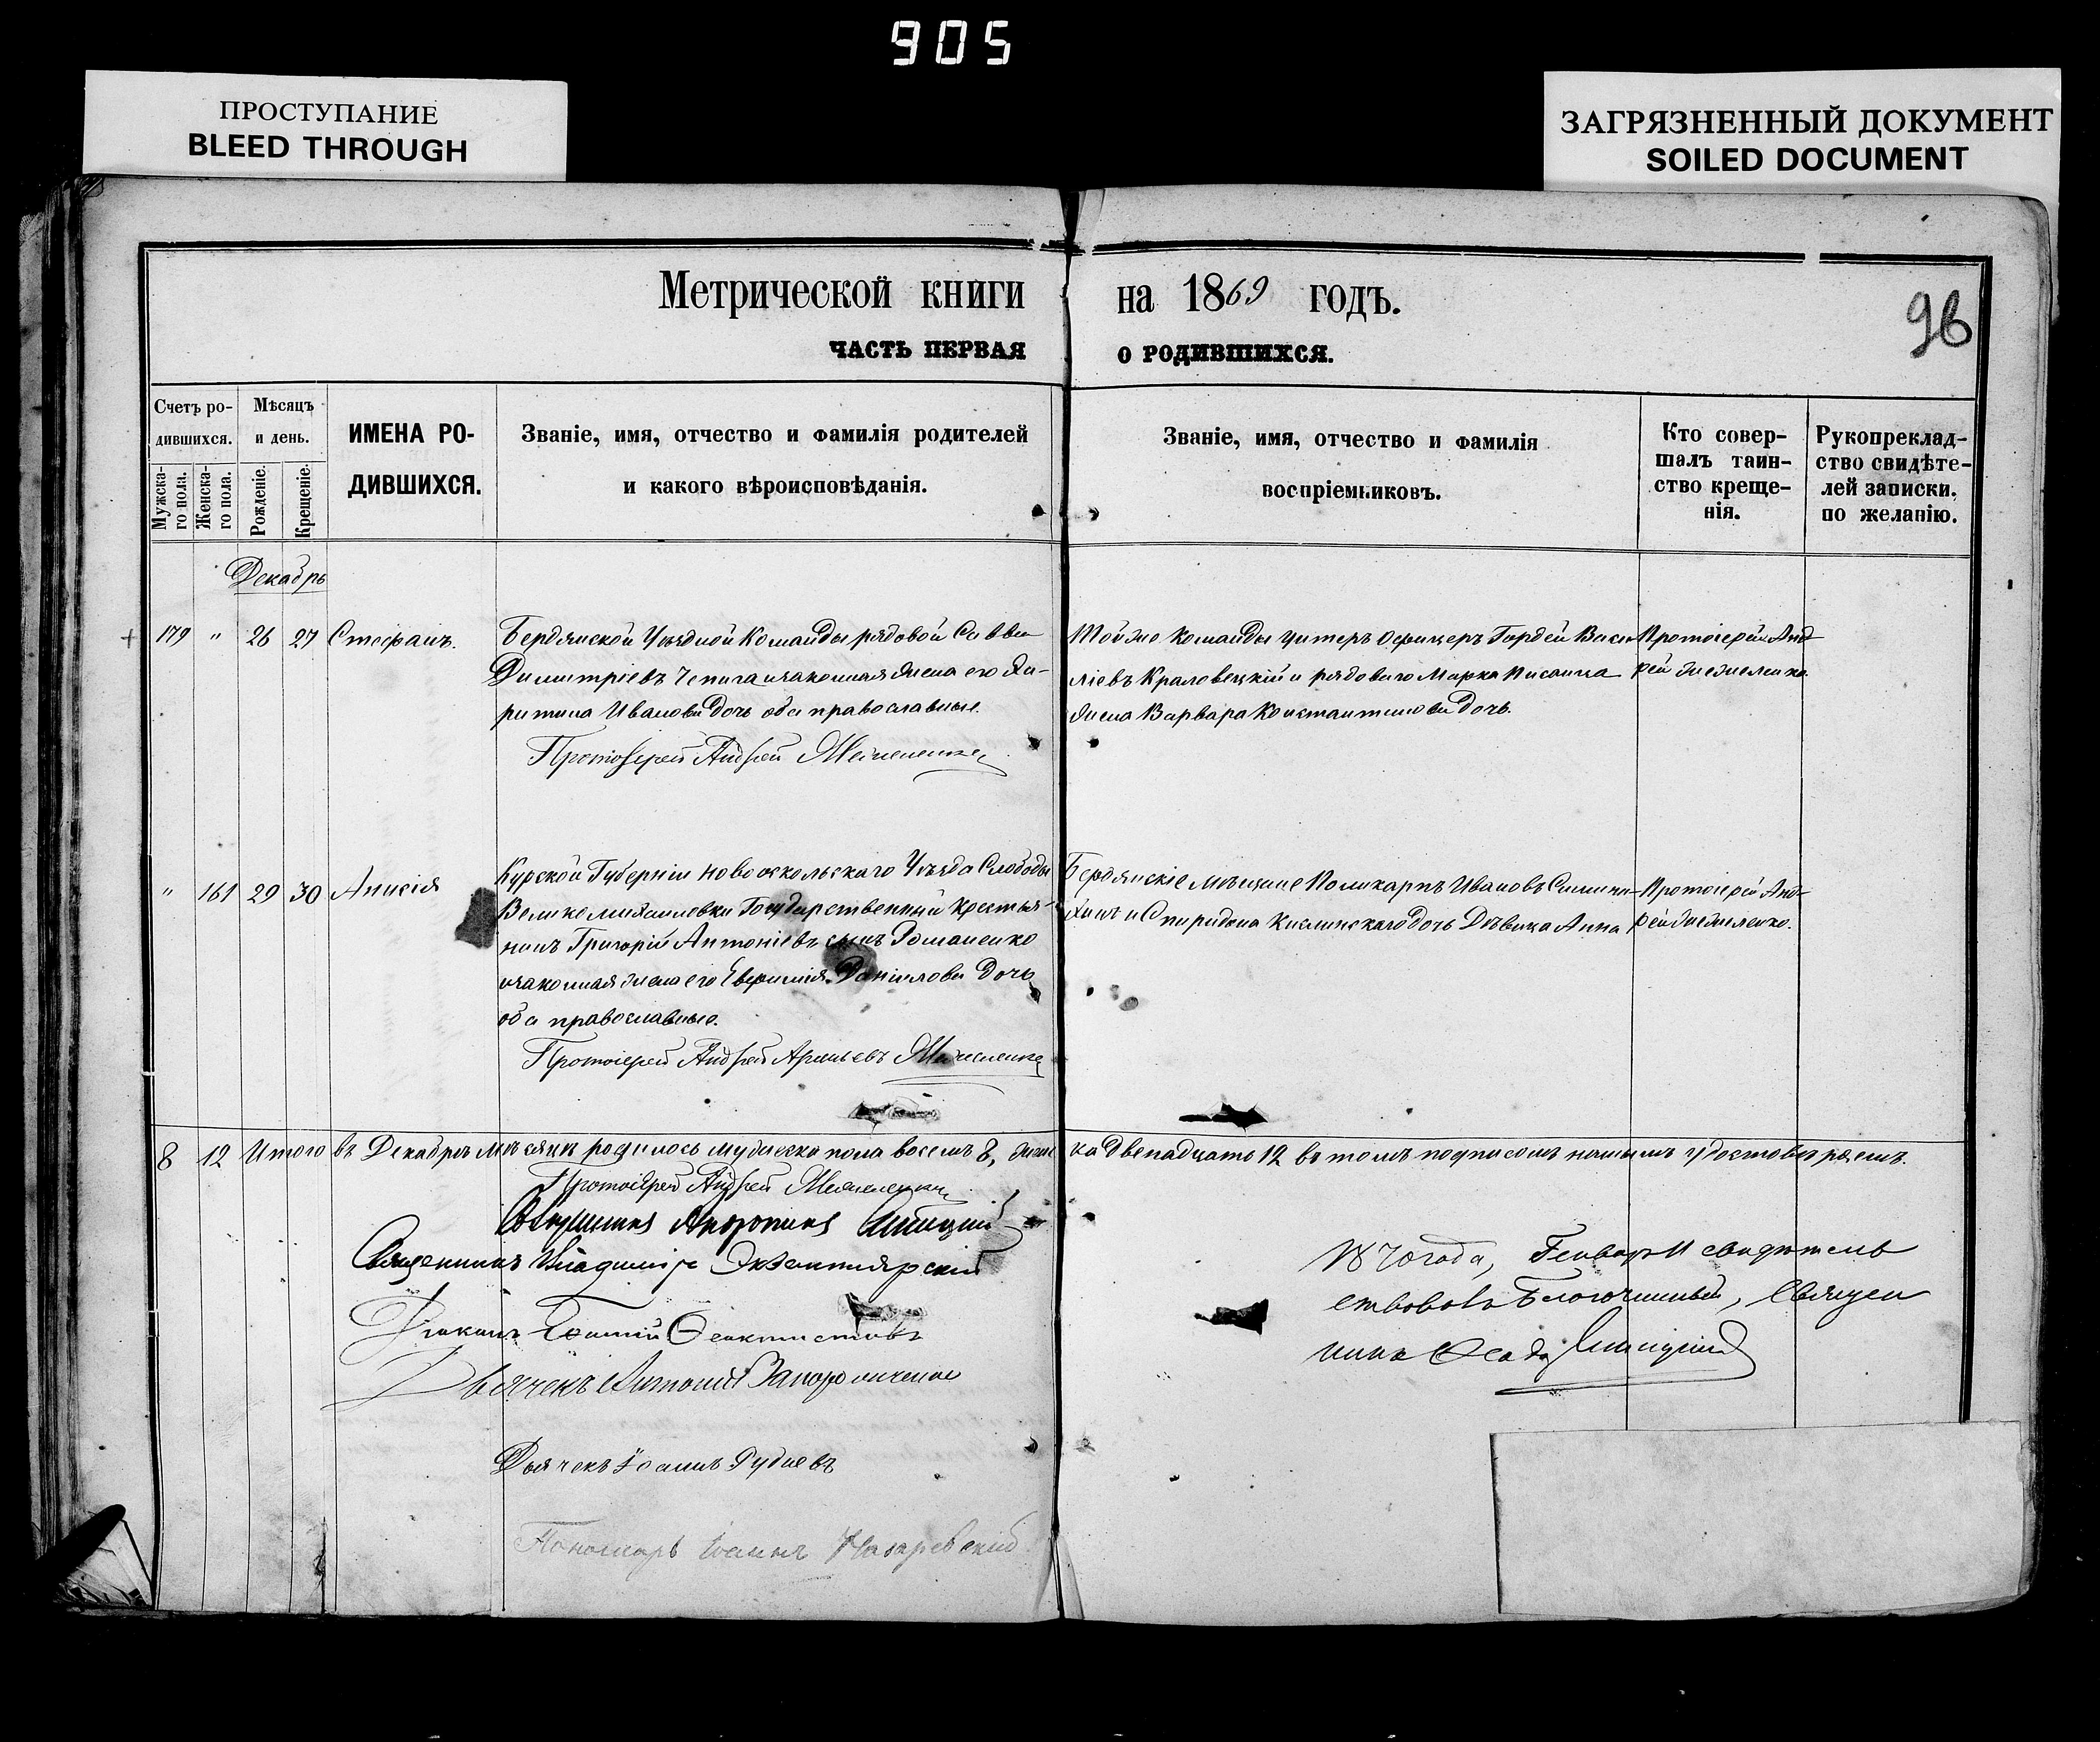 905
ПРОСТУПАНИЕ
BLEED THROUGH
ЗАГРЯЗНЕННЫЙ ДОКУМЕНТ
SOILED DOCUMENT
Метрической книги на 1869 годъ.
96
ЧАСТЬ ПЕРВАЯ О РОДИВШИХСЯ.
Счетъ ро-
дившихся.
Мужска-
го пола.
Женска-
го пола.
Мѣсяцъ
и день.
Рожденіе.
Крещеніе.
ИМЕНА РО-
ДИВШИХСЯ.
Званіе, имя, отчество и фамилія родителей
и какого вѣроисповѣданія.
Званіе, имя, отчество и фамилія
воспріемниковъ.
Кто совер-
шалъ таин-
ство креще-
нія.
Рукоприклад-
ство свидѣте-
лей записки.
по желанію.
Декабрь
179 " 26 27 Стефанъ.
Бердянской Уѣздной Команды рядовой Савва
Димитріевъ Чепига и законная жена его Ха-
ритина Иванова дочь оба православные.
Протоіерей Андрей
Той же команды унтеръ офицеръ Гордей Васи-
ліевъ Краловецкій и рядоваго Марка
жена Варвара Константинова дочь.
Протоіерей Анд-
рей
" 161 29 30 Анисія
Курской Губерніи Новооскольскаго Уѣзда Слободы
Великомихайловки Государственный крестья-
нинъ Григорій Антоніевъ сынъ Романенко
и законная жена его Евфимія Данилова дочь
оба православные.
Протоіерей Андрей
Бердянскіе мѣщане Поликарпъ Ивановъ
и Спиридона дочь Дѣвица Анна
Протоіерей Анд-
рей
8 12 Итого въ Декабрѣ мѣсяцѣ родилось мужеска пола восемъ 8, женс
ка двенадцать 12 въ томъ подписомъ нашимъ удостовѣряемъ.
Протоіерей Андрей
Священникъ
Священникъ Владиміръ Экземплярскій
Діаконъ Феоктистовъ
Дьячекъ Антоній
Дьячекъ Іоаннъ Рудневъ
Пономарь Іоаннъ Назаревскій
1870 года, Генваря свидѣтель
ствовалъ Благочинный, Священ
никъ